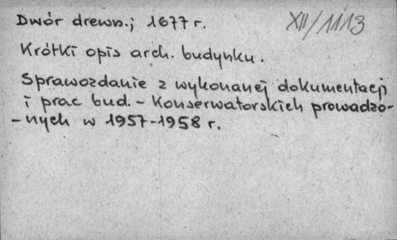 Dwór drewn.; 1677 r.
XII/1113
Krótki opis arch. budynku.
Sprawozdanie z wykonanej dokumentacji
i prac bud. - Konserwatorskich prowadzo-
-nych w 1957-1958 r.